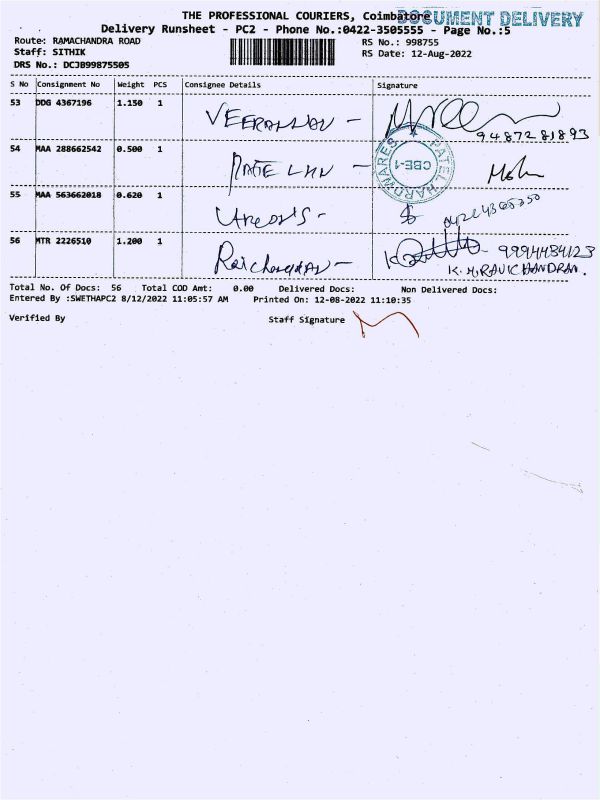 THE PROFESSIONAL COURIERS, Coimbatore
DOCUMENT DELIVERY
Delivery Runsheet - PC2 - Phone No.:0422-3505555 - Page No.:5
Route: RAMACHANDRA ROAD RS No.: 998755
Staff: SITHIK RS Date: 12-Aug-2022
DRS No.: DCJB99875505
S No Consignment No Weight PCS Consignee Details Signature
53 DDG 4367196 1.150 1
9487281893
54 MAA 288662542 0.500 1
PATEL HARDWARES
CBE-1
55 MAA 563662018 0.620 1
56 MTR 2226510 1.200 1 9994484123
K.M.RAVICHANDRAN.
Total No. Of Docs: 56 Total COD Amt: 0.00 Delivered Docs: Non Delivered Docs:
Entered By :SWETHAPC2 8/12/2022 11:05:57 AM Printed On: 12-08-2022 11:10:35
Verified By Staff Signature